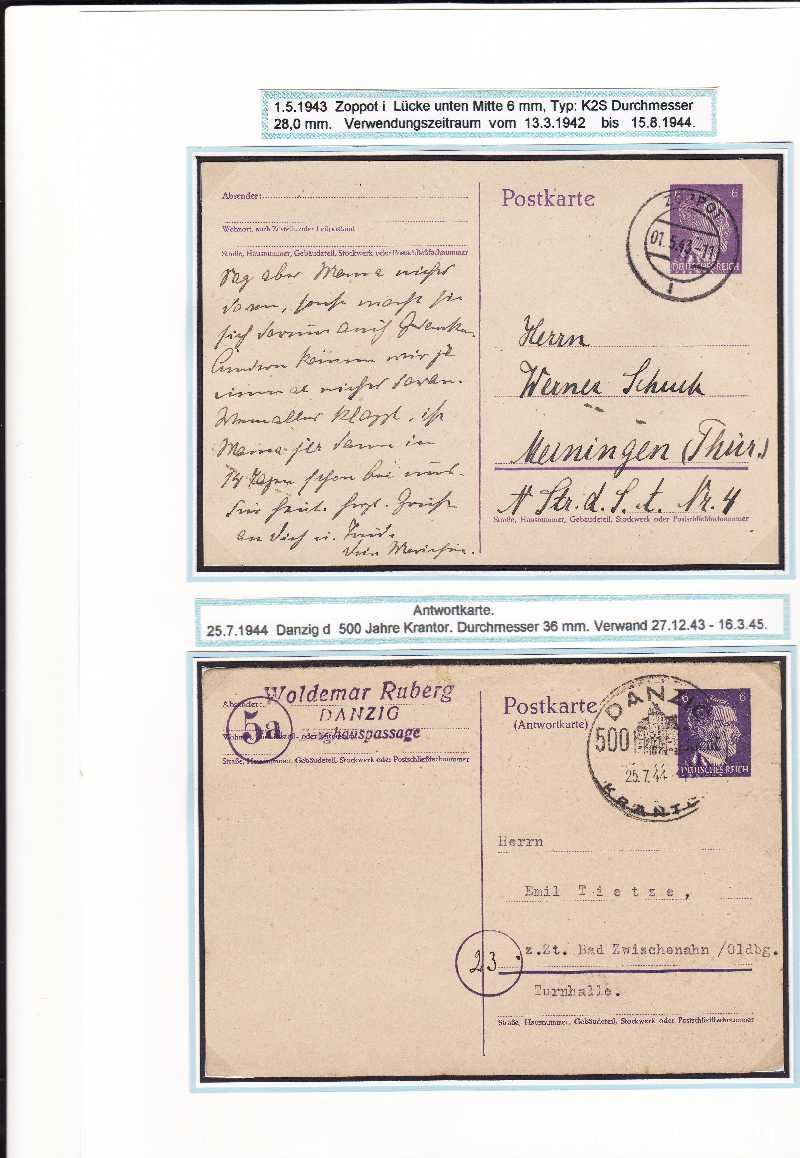 1.5.1943 Zoppot i Lücke unten Mitte 6 mm, Typ: K2S Durchmesser
28,0 mm. Verwendungszeitraum vom 13.3.1942 bis 15.8.1944.
Absender:
Wohnort, auch Zustell- oder Leitpostamt
Straße, Hausnummer, Gebäudeteil, Stockwerk oder Postschließfachnummer
Sag aber Mama nichts
davon, sonst macht sie
sich darum auch Gedanken.
Ändern können wir ja
nichts daran.
Wenn alles klappt, ist
Mama ja dann in
14 Tagen schon bei uns.
Für heut herzl. Grüße
an Dich u.
Dein
Postkarte
6
ZOPPOT
01.5.43-11
i
DEUTSCHES REICH
Herrn
Werner Schuch
Meiningen (Thür.)
Str. d. S.A. Nr. 4
Straße, Hausnummer, Gebäudeteil, Stockwerk oder Postschließfachnummer
Antwortkarte.
25.7.1944 Danzig d 500 Jahre Krantor. Durchmesser 36 mm. Verwand 27.12.43 - 16.3.45.
Absender:
Woldemar Ruberg
DANZIG
hauspassage
5a
Straße, Hausnummer, Gebäudeteil, Stockwerk oder Postschließfachnummer
Postkarte
(Antwortkarte)
6
DANZIG
500
25.7.44
KRANTO
DEUTSCHES REICH
Herrn
Emil Tietze,
z.Zt. Bad Zwischenahn /Oldbg.
23
Turnhalle.
Straße, Hausnummer, Gebäudeteil, Stockwerk oder Postschließfachnummer